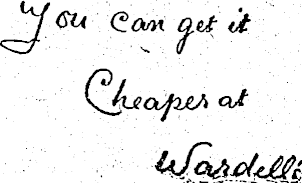 "You can get it
Cheaper at
Wardelli